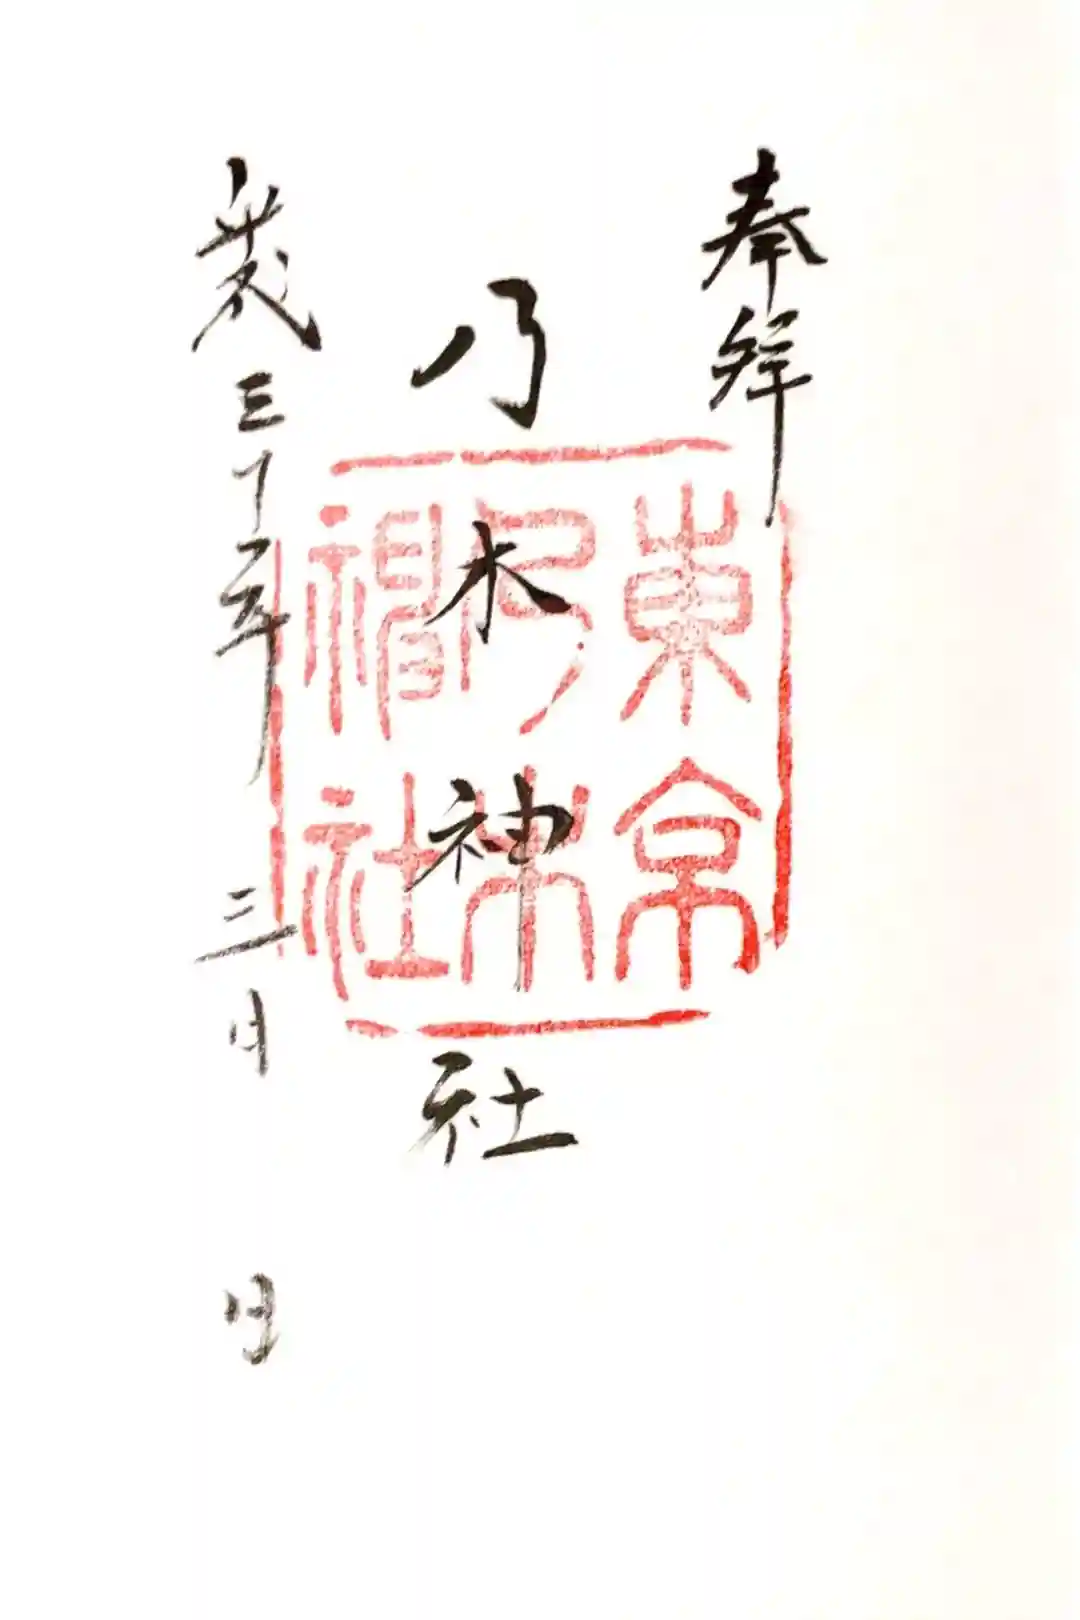 奉拝
乃木神社
平成三十一年 三月 日
東京
乃木
神社